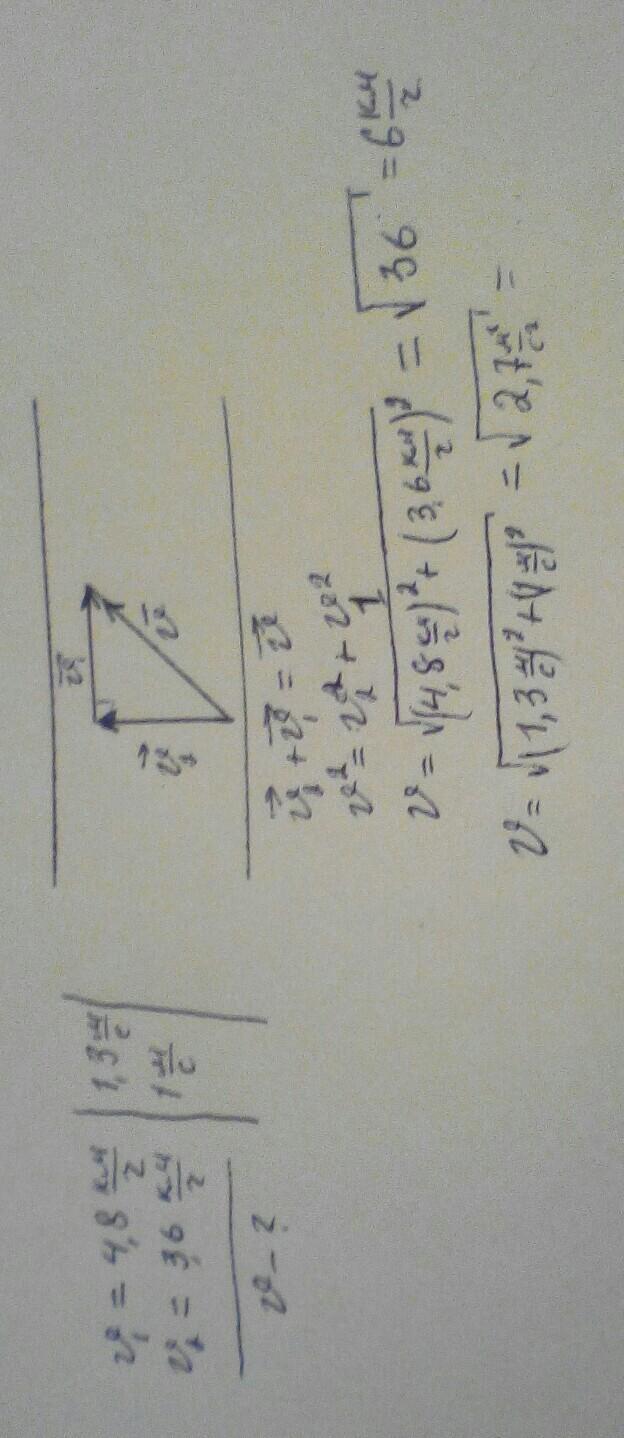 v₁ = 4,8 км/г | 1,3 м/с
v₂ = 3,6 км/г | 1 м/с
v - ?
v₁
v₂
v
v₂ + v₁ = v
v² = v₂² + v₁²
v = √(4,8 км/г)² + (3,6 км/г)² = √36 = 6 км/г
v = √(1,3 м/с)² + (1 м/с)² = √2,7 м²/с² =